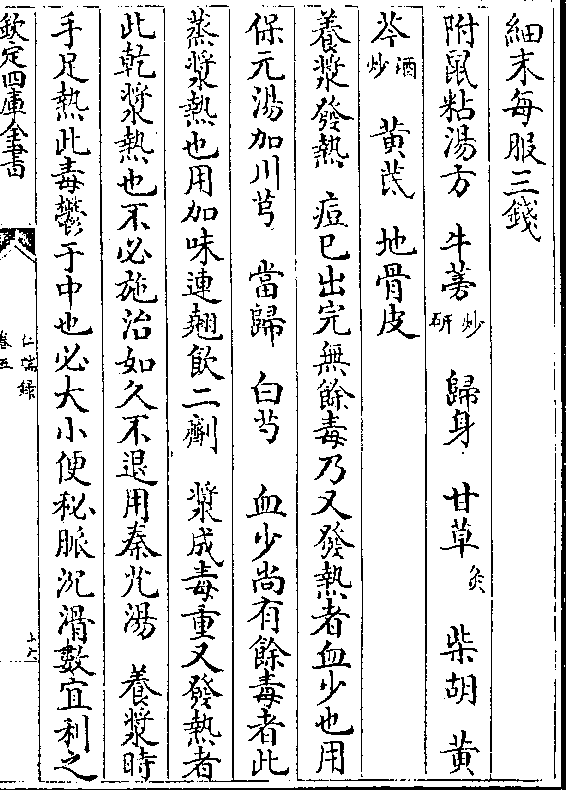 細末每服三錢
附鼠粘湯方　牛蒡炒研　歸身　甘草炙　柴胡　黄
芩酒炒　黄芪　地骨皮
養漿發熱　痘已出完無餘毒乃又發熱者血少也用
保元湯加川芎　當歸　白芍　血少尚有餘毒者此
蒸漿熱也用加味連翹飲二劑　漿成毒重又發熱者
此乾漿熱也不必施治如久不退用秦艽湯　養漿時
手足熱此毒鬱于中也必大小便秘脈沉滑數宜利之
欽定四庫全書
仁端錄
卷五